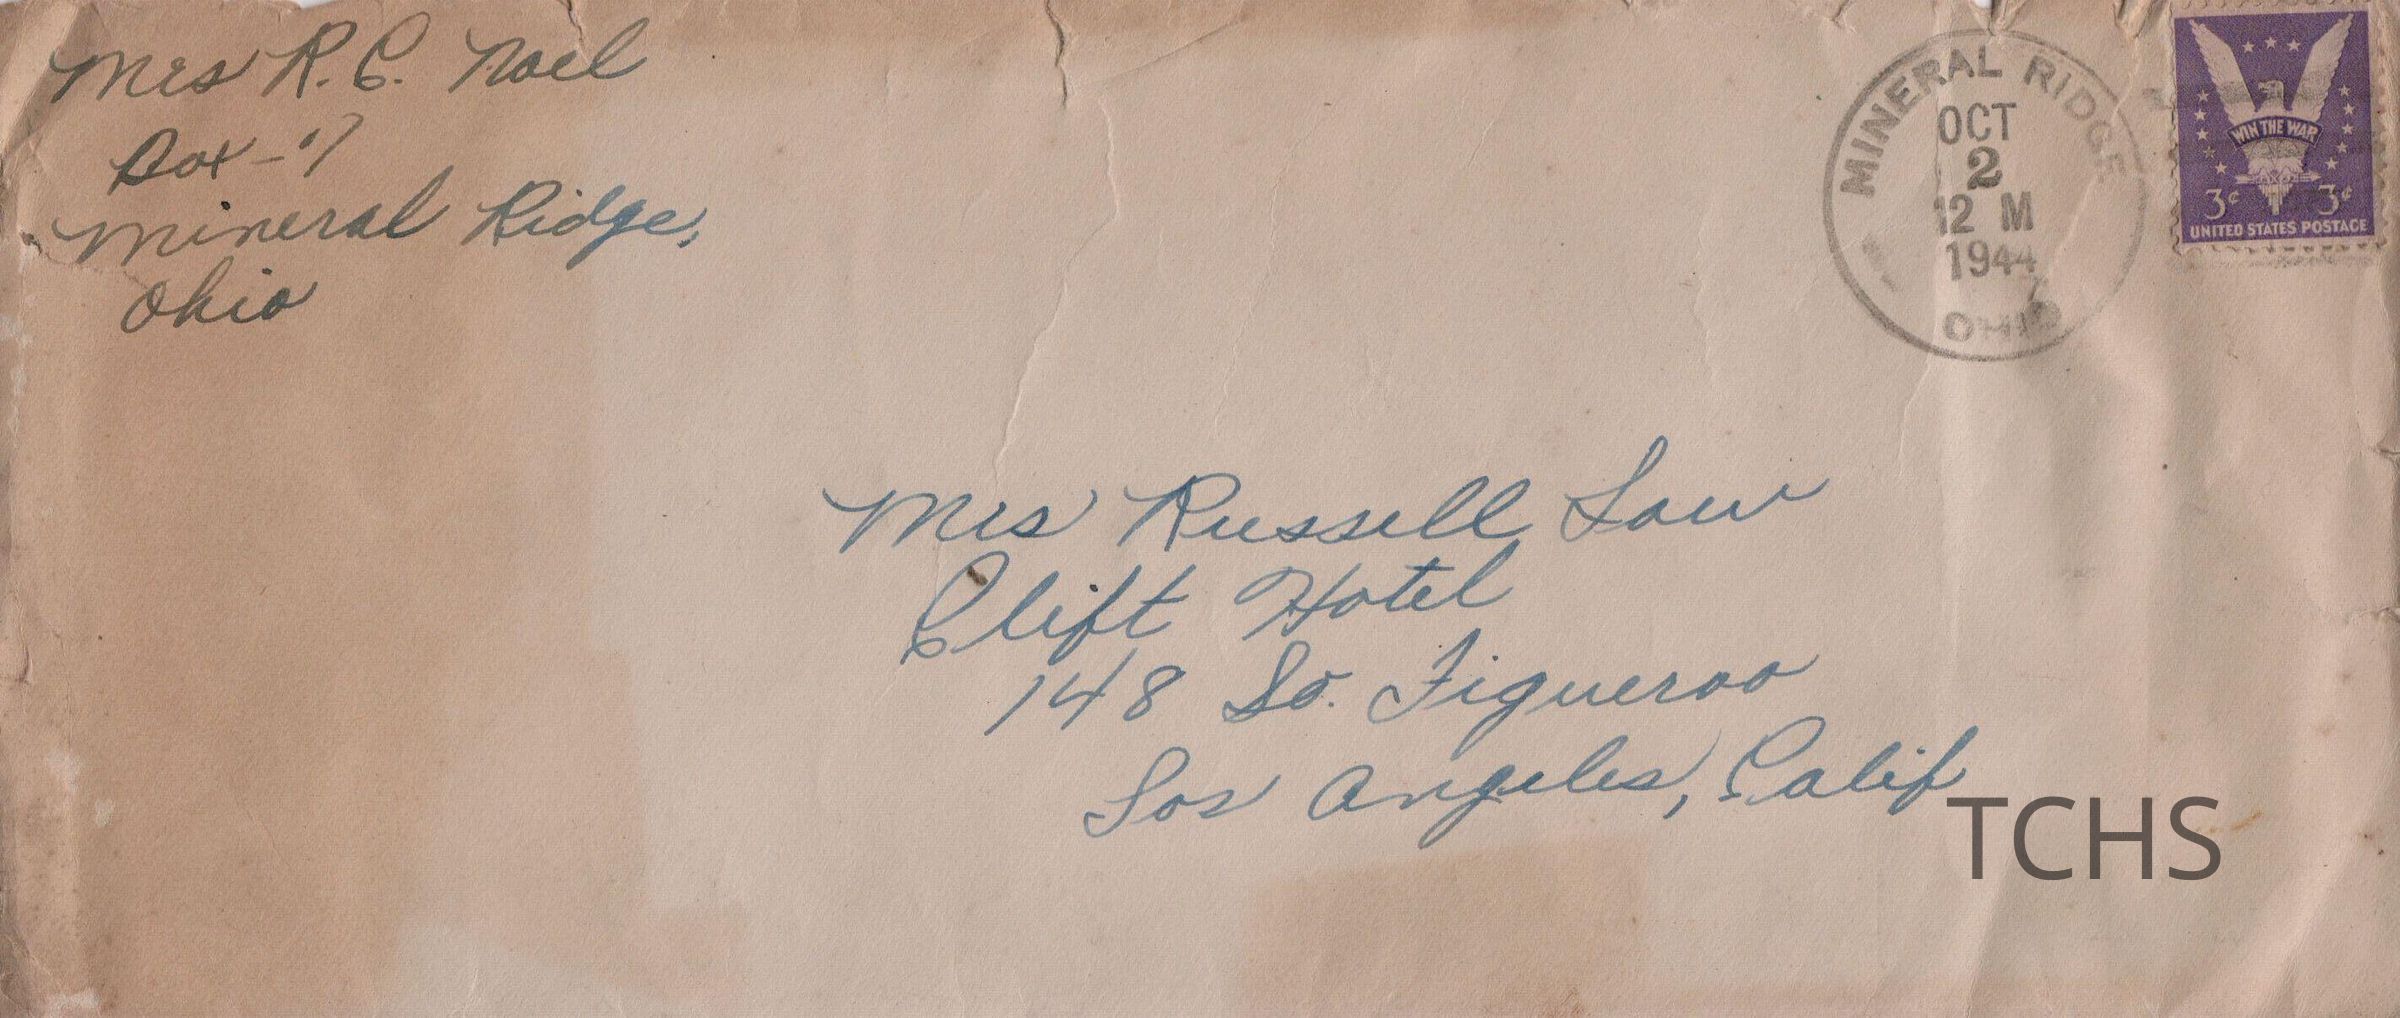 Mrs R. C. Noel
Box - 17
Mineral Ridge,
Ohio
MINERAL RIDGE
OCT
2
12 M
1944
OHIO
WIN THE WAR
3¢ 3¢
UNITED STATES POSTAGE
Mrs Russell Law
Clift Hotel
148 So. Figueroa
Los Angeles, Calif
TCHS